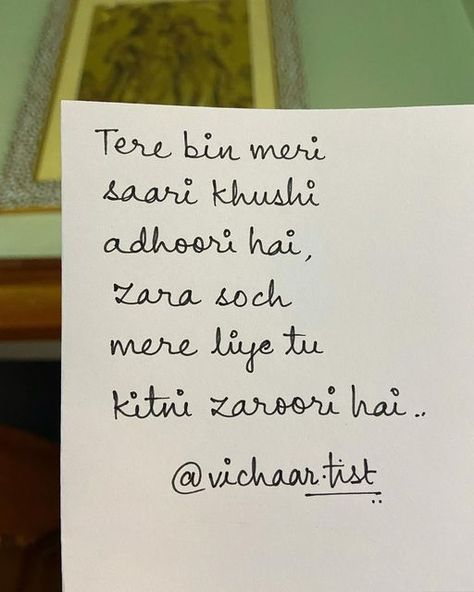 Tere bin meri
saari khushi
adhoori hai,
Zara soch
mere liye tu
kitni zaroori hai..
@vichaar.tist